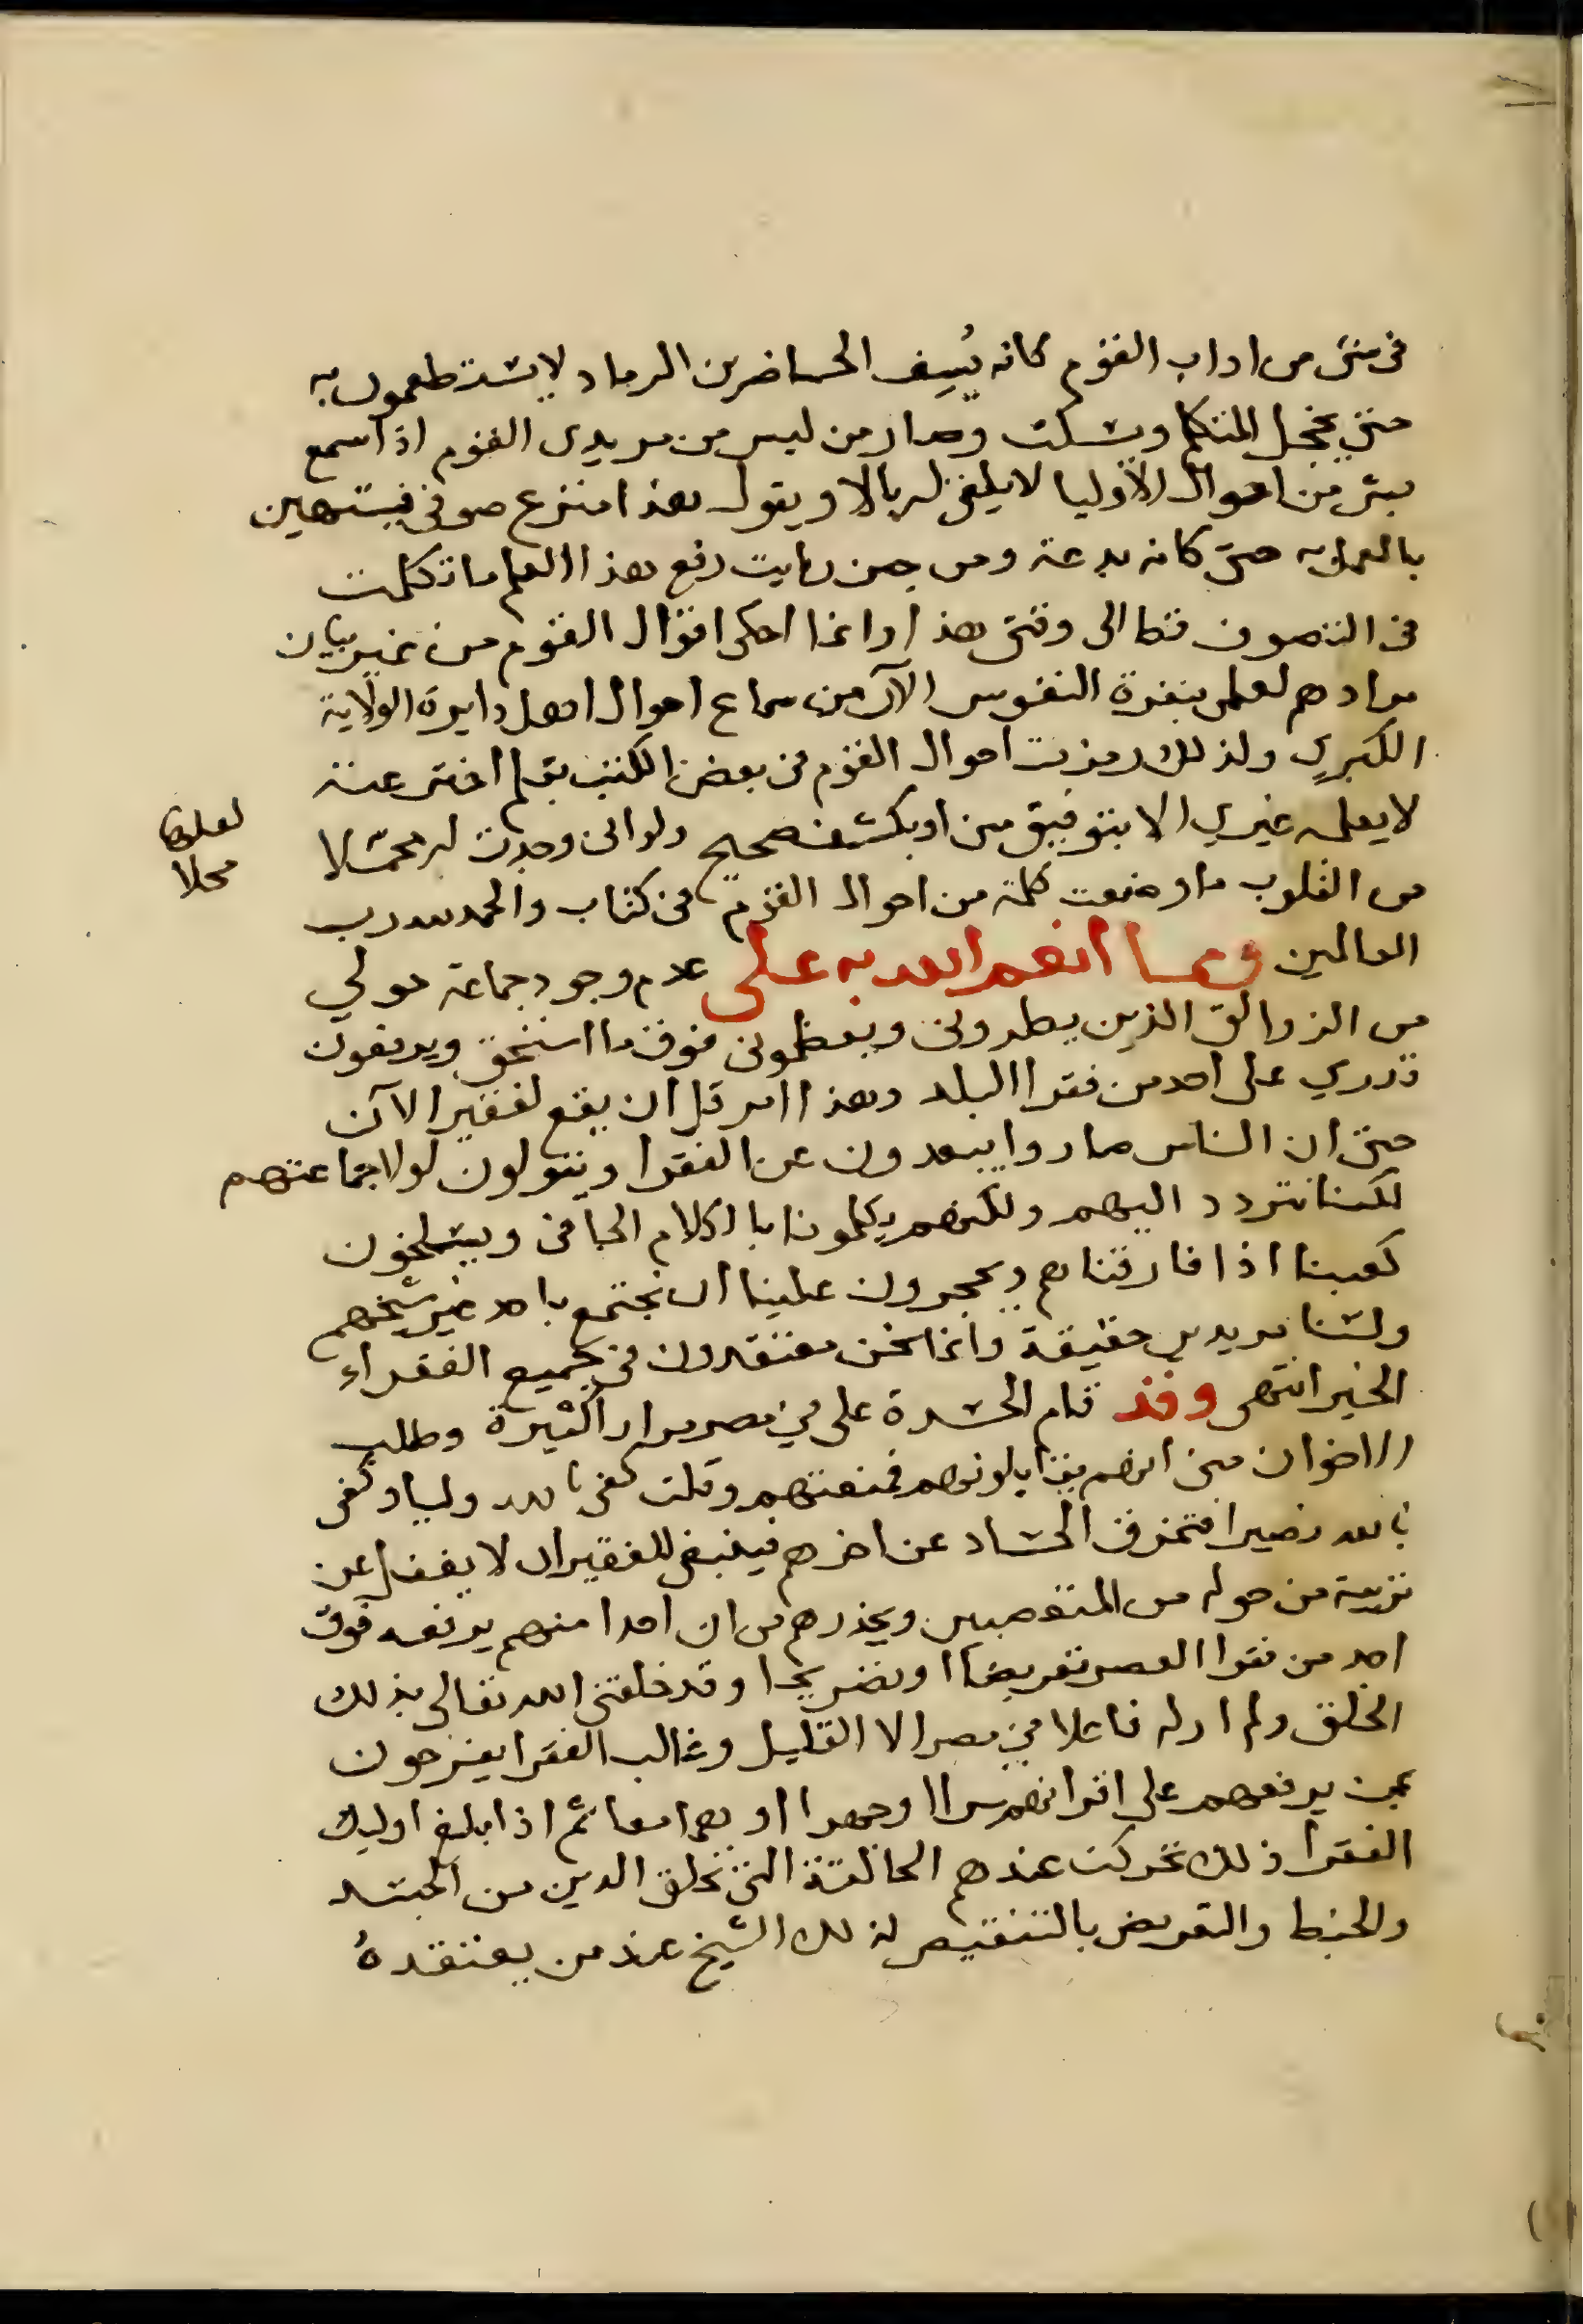 في شي من اداب القوم كانه يُسِف الحاضرين الرماد لا يستطعمون به
حتي يخجل المتكلم ويسكت وصار من ليس من مريدي القوم اذا سمع
بشي من احوال الاوليا لا يلقي له بالا ويقول هذا منزع صوفي فيستهين
بالعمل به حتي كانه بدعة ومن حين رايت رفع هذا العلم ما تكلمت
في التصوف قط الى وقتي هذا وانما احكي اقوال القوم من غير بيان
مرادهم لعلمي بنفرة النفوس الآن من سماع احوال اهل دايرة الولاية
الكبري ولذلك رمزت احوال القوم في بعض الكتب بقلم اخترعته
لا يعلمه غيري الا بتوقيف مني او بكشف صحيح ولو اني وجدت له محملا
لعلها
محلا
من القلوب ما وضعت كلمة من احوال القوم في كتاب والحمد لله رب
العالمين ومما انعم الله به على عدم وجود جماعة حولي
من الزوالق الذين يطروني ويعظموني فوق ما استحق ويرفعون
قدري على احد من فقرا البلد وهذا امر قل ان يقع لفقير الآن
حتي ان الناس صاروا يبعدون عن الفقرا ويقولون لولا جماعتهم
لكنا نتردد اليهم ولكنهم يكلمونا بالكلام الجافي ويسلخون
كعبنا اذا فارقناهم ويحجرون علينا ان نجتمع باحد غير شيخهم
ولسنا مريدين حقيقة وانما نحن معتقدون في جميع الفقراء
الخير انتهى وقد قام الحسدة على في مصر مرارا كثيرة وطلب
الاخوان مني انهم يقابلونهم فمنعتهم وقلت كفى بالله وليا وكفى
بالله نصيرا فتمزق الحساد عن اخرهم فينبغي للفقير ان لا يغفل عن
تربية من حوله من المتعصبين ويحذرهم من ان احدا منهم يرفعه فوق
احد من فقرا العصر تعريضا او تصريحا وقد خلقني الله تعالى بذلك
الخلق ولم ار له فاعلا في مصر الا القليل وغالب الفقرا يفرحون
بمن يرفعهم على اقرانهم سرا او جهرا او هما معا ثم اذا بلغ اوليك
الفقرا ذلك تحركت عندهم الحالقة التي تحلق الدين من الحسد
والحط والتعريض بالتنقيص لذلك الشيخ عند من يعتقدهُ